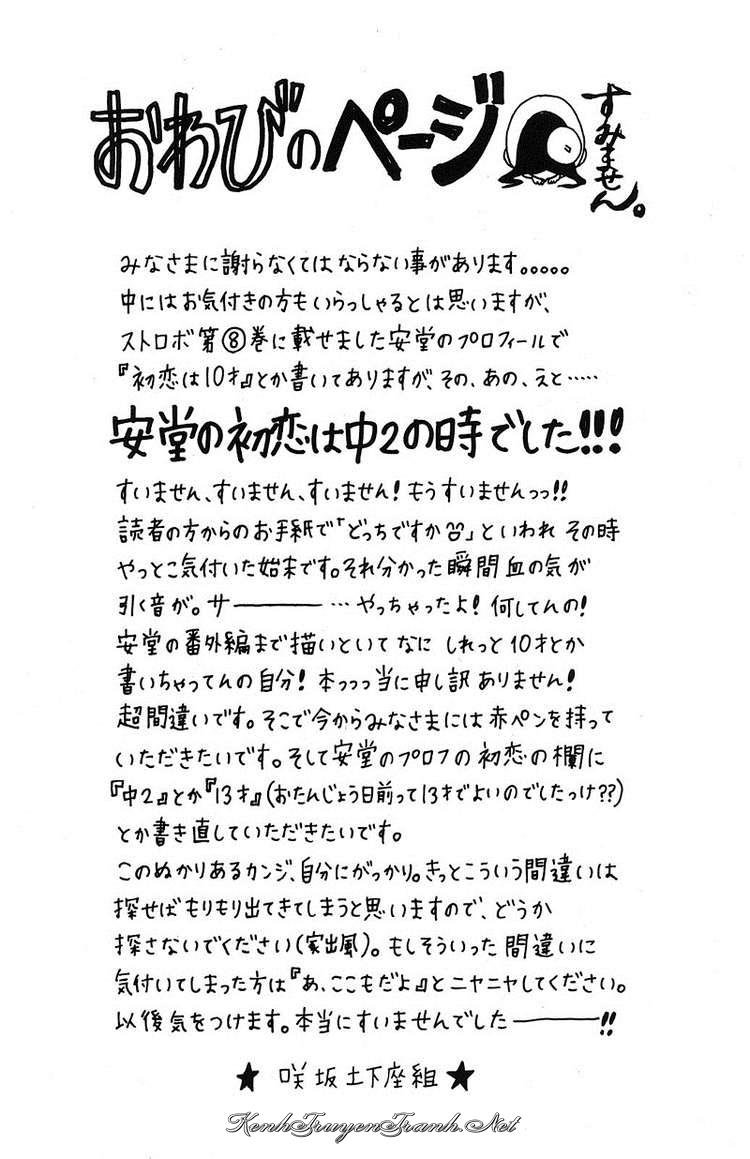 おわびのページ
すみません。
みなさまに謝らなくてはならない事があります。。。。。
中にはお気付きの方もいらっしゃるとは思いますが、
ストロボ第⑧巻に載せました安堂のプロフィールで
『初恋は10才』とか書いてありますが、その、あの、えと……
安堂の初恋は中2の時でした!!!
すいません、すいません、すいません!もうすいませんっっ!!
読者の方からのお手紙で「どっちですか」といわれ その時
やっとこ気付いた始末です。それ分かった瞬間血の気が
引く音が。サ――――…やっちゃったよ!何してんの!
安堂の番外編まで描いといてなに しれっと10才とか
書いちゃってんの自分!本っっっ当に申し訳ありません!
超間違いです。そこで今からみなさまには赤ペンを持って
いただきたいです。そして安堂のプロフの初恋の欄に
『中2』とか『13才』(おたんじょう日前って13才でよいのでしたっけ??)
とか書き直していただきたいです。
このぬかりあるカンジ、自分にがっかり。きっとこういう間違いは
探せばもりもり出てきてしまうと思いますので、どうか
探さないでください(家出風)。もしそういった間違いに
気付いてしまった方は『あ、ここもだよ』とニヤニヤしてください。
以後気をつけます。本当にすいませんでした――――!!
★ 咲坂土下座組 ★
KenhTruyenTranh.Net